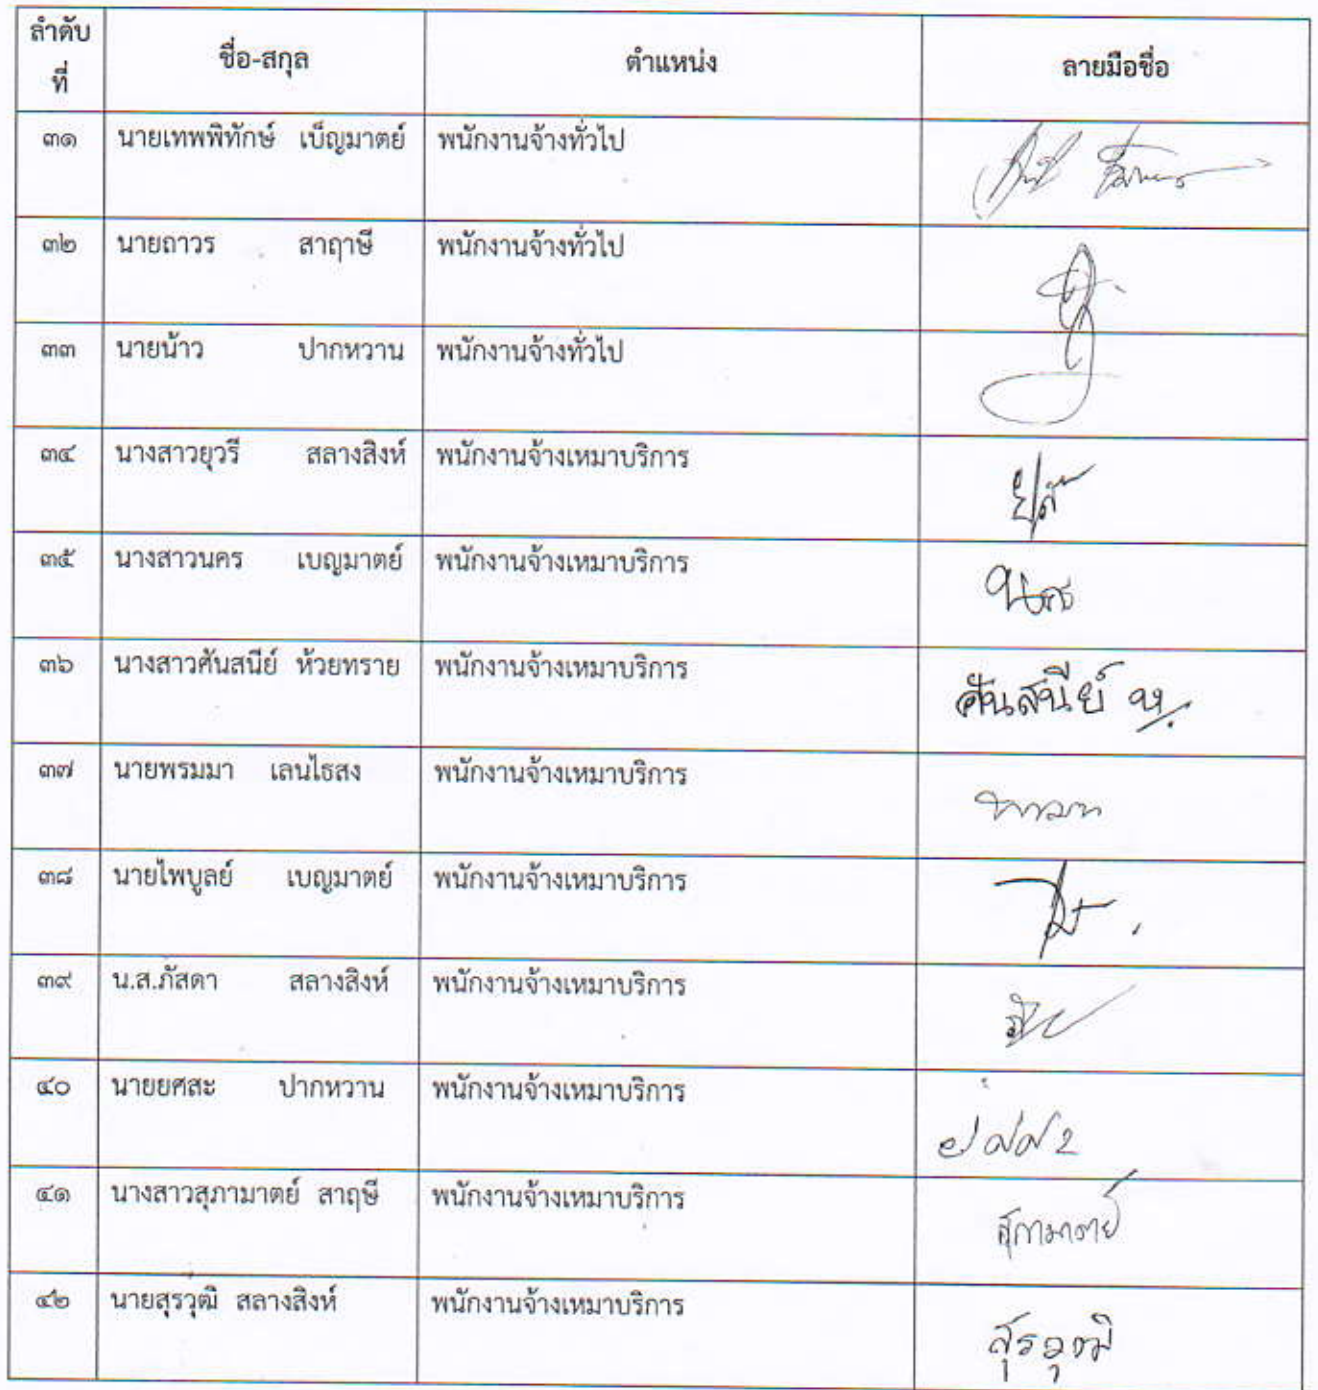 ลำดับ
ที่
ชื่อ-สกุล
ตำแหน่ง
ลายมือชื่อ
๓๑ นายเทพพิทักษ์ เบ็ญมาตย์ พนักงานจ้างทั่วไป
๓๒ นายถาวร สาฤาษี พนักงานจ้างทั่วไป
๓๓ นายน้าว ปากหวาน พนักงานจ้างทั่วไป
๓๔ นางสาวยุวรี สลางสิงห์ พนักงานจ้างเหมาบริการ
๓๕ นางสาวนคร เบญมาตย์ พนักงานจ้างเหมาบริการ นคร
๓๖ นางสาวศันสนีย์ ห้วยทราย พนักงานจ้างเหมาบริการ ศันสนีย์ ห.
๓๗ นายพรมมา เลนไธสง พนักงานจ้างเหมาบริการ
๓๘ นายไพบูลย์ เบญมาตย์ พนักงานจ้างเหมาบริการ
๓๙ น.ส.ภัสดา สลางสิงห์ พนักงานจ้างเหมาบริการ
๔๐ นายยศสะ ปากหวาน พนักงานจ้างเหมาบริการ
๔๑ นางสาวสุภามาตย์ สาฤษี พนักงานจ้างเหมาบริการ สุภามาตย์
๔๒ นายสุรวุฒิ สลางสิงห์ พนักงานจ้างเหมาบริการ สุรวุฒิ